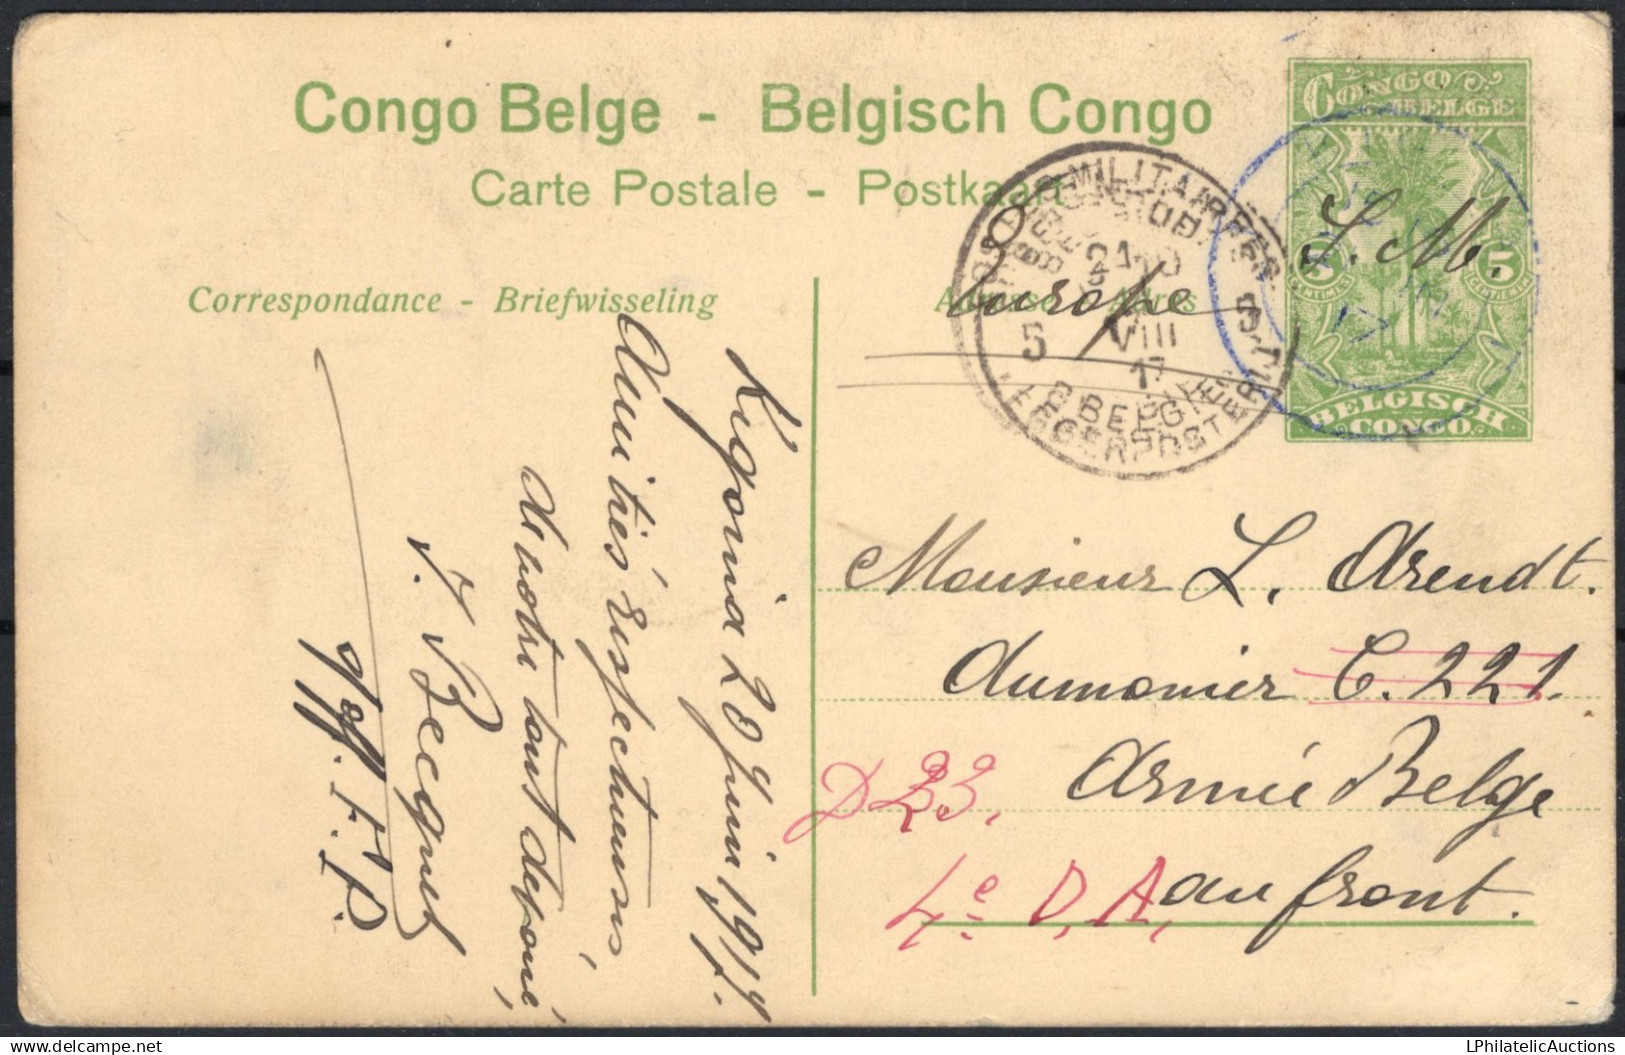 Congo Belge - Belgisch Congo
Carte Postale - Postkaart
Correspondance - Briefwisseling
CONGO
BELGE
5
5
BELGISCH
CONGO
S. M.
Europe
MILITAIRES
5
VIII
17
5
BELGIE
LEGERPOSTERIJ
17
Kigoma 20 Juin 1917.
Amitiés respectueuses
de votre tout dévoué,
J. Becquet
Monsieur L. Arendt.
Aumonier C. 221.
Armée Belge
au front.
D 33.
4e D. A.
delcampe.net
LPhilatelicAuctions